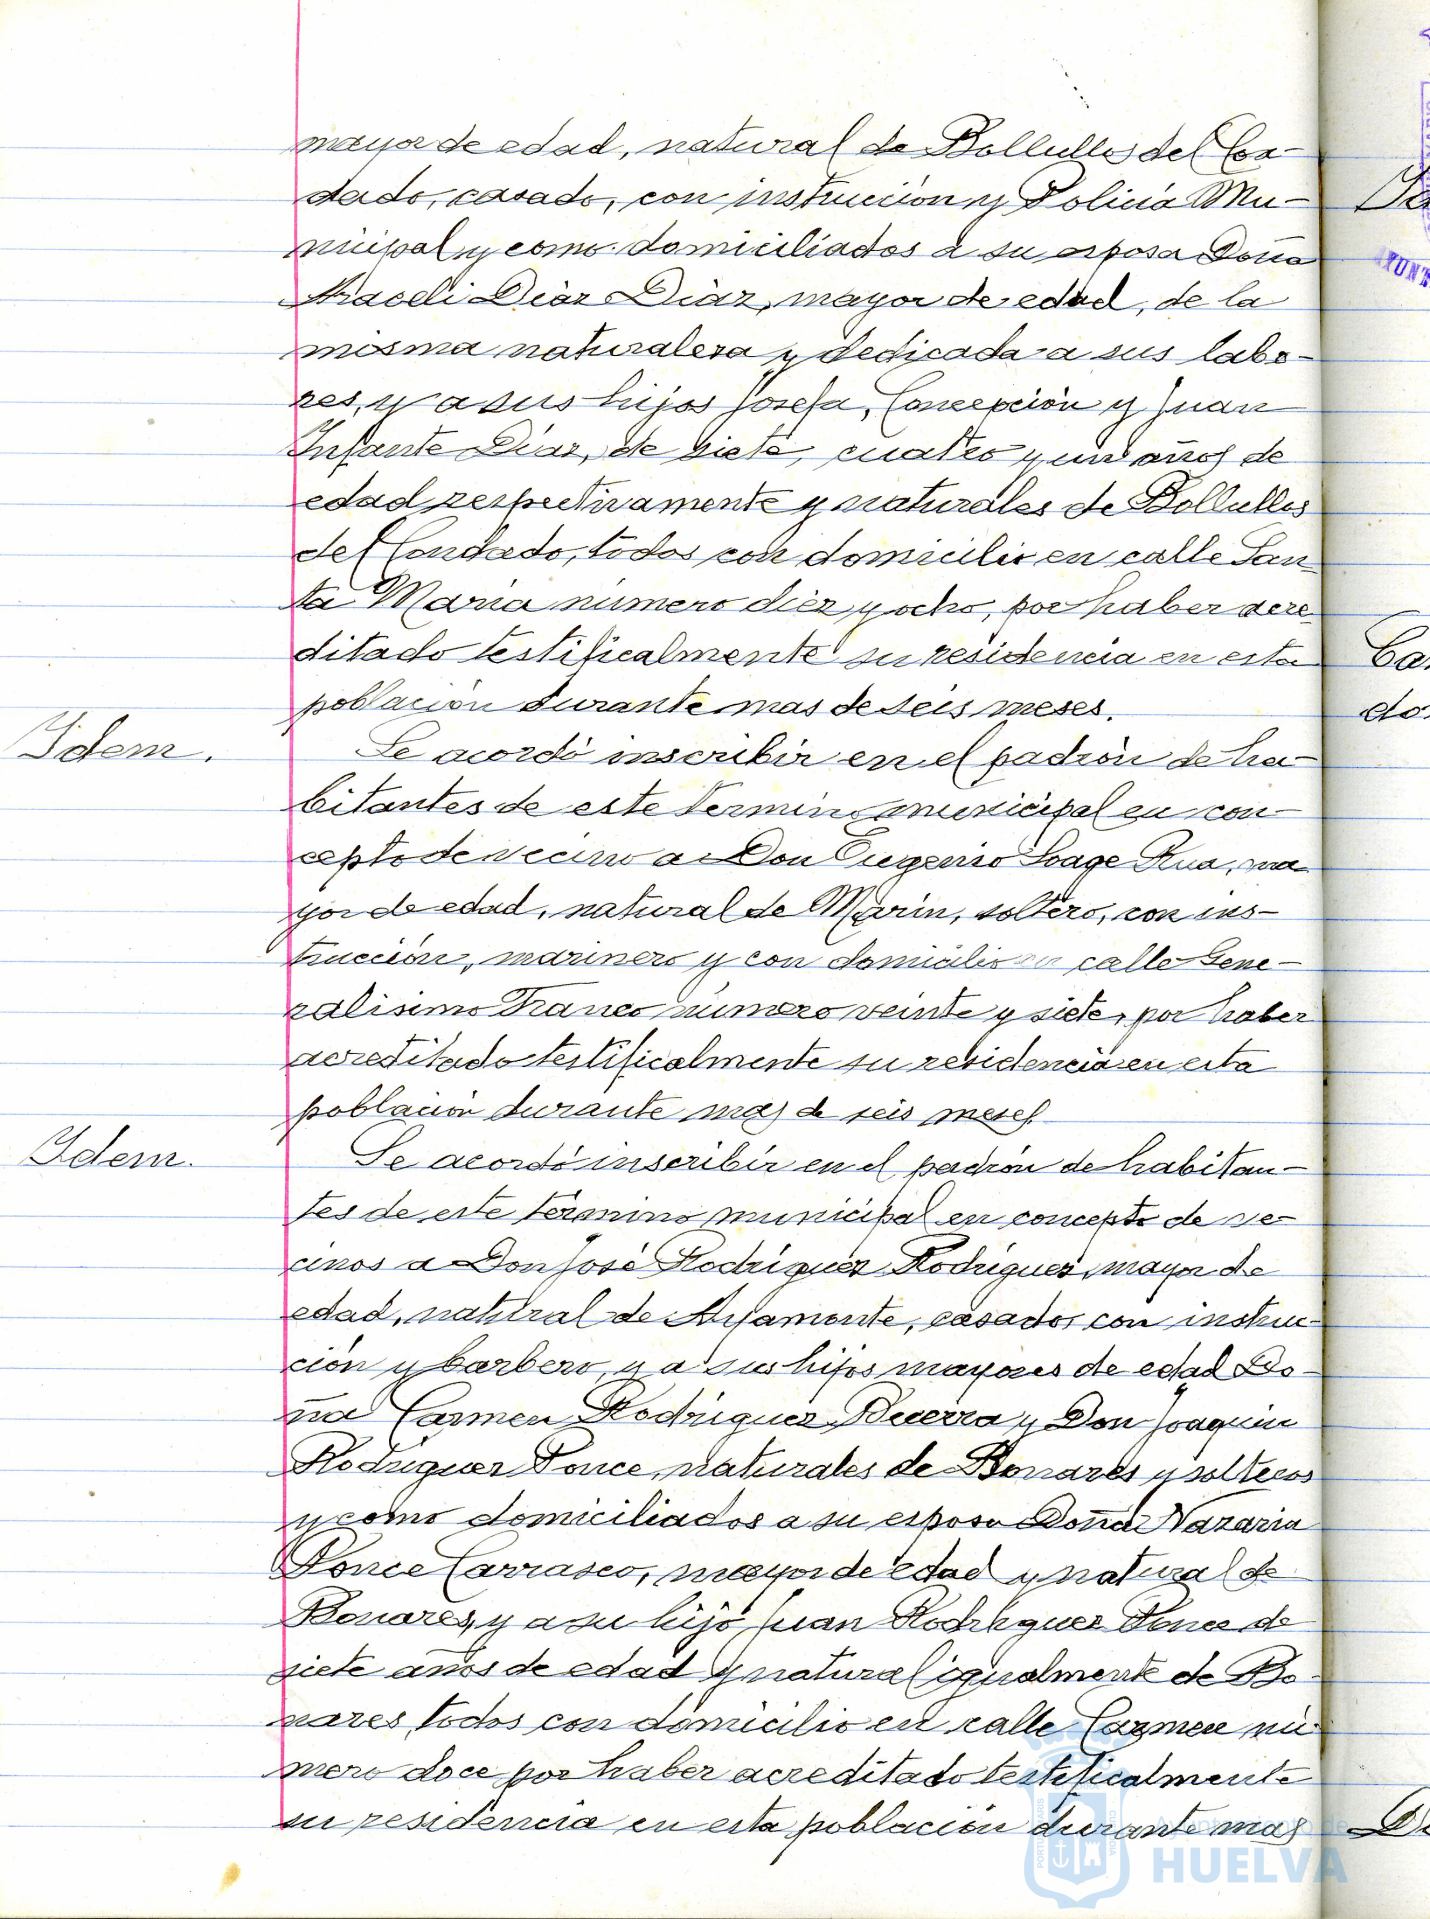 mayor de edad, natural de Bollullos del Con-
dado, casado, con instrucción y Policia Mu-
nicipal y como domiciliados a su esposa Doña
Araceli Diaz Diaz, mayor de edad, de la
misma naturaleza y dedicada a sus labo-
res, y a sus hijos Josefa, Concepción y Juan
Infante Diaz, de siete, cuatro y un años de
edad respectivamente y naturales de Bollullos
del Condado, todos con domicilio en calle San-
ta Maria número diez y ocho, por haber acre-
ditado testificalmente su residencia en esta
población durante mas de seis meses.
Idem.
Se acordó inscribir en el padrón de ha-
bitantes de este termino municipal en con-
cepto de vecino a Don Eugenio Soage Rua, ma-
yor de edad, natural de Marin, soltero, con ins-
trucción, marinero y con domicilio en calle Gene-
ralisimo Franco número veinte y siete, por haber
acreditado testificalmente su residencia en esta
población durante mas de seis meses
Idem.
Se acordó inscribir en el padrón de habitan-
tes de este término municipal en concepto de ve-
cinos a Don José Rodriguez Rodriguez, mayor de
edad, natural de Ayamonte, casado, con instruc-
ción y barbero, y a sus hijos mayores de edad Do-
ña Carmen Rodriguez Becerra y Don Joaquin
Rodriguez Ponce, naturales de Bonares y solteros
y como domiciliados a su esposa Doña Nazaria
Ponce Carrasco, mayor de edad y natural de
Bonares, y a su hijo Juan Rodriguez Ponce de
siete años de edad y natural igualmente de Bo-
nares, todos con domicilio en calle Carmen nú-
mero doce por haber acreditado testificalmente
su residencia en esta población durante mas
Ayuntamiento de
HUELVA